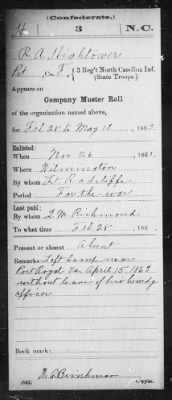 (Confederate.)
H 3 N.C.
R A Hightower
Pvt, Co. F, 3 Reg't North Carolina Inf.
(State Troops.)
Appears on
Company Muster Roll
of the organization named above,
for Feb 28 to May 18, 1863.
Enlisted:
When Nov 26, 1861.
Where Wilmington
By whom Lt. Radcliffe
Period For the war
Last paid:
By whom J. M. Richmond
To what time Feb 28, 186
Present or absent Absent
Remarks: Left Camp near
Port Royal Va. April 15, 1863
without leave of his comdg
officer
Book mark:
(642) Copyist.